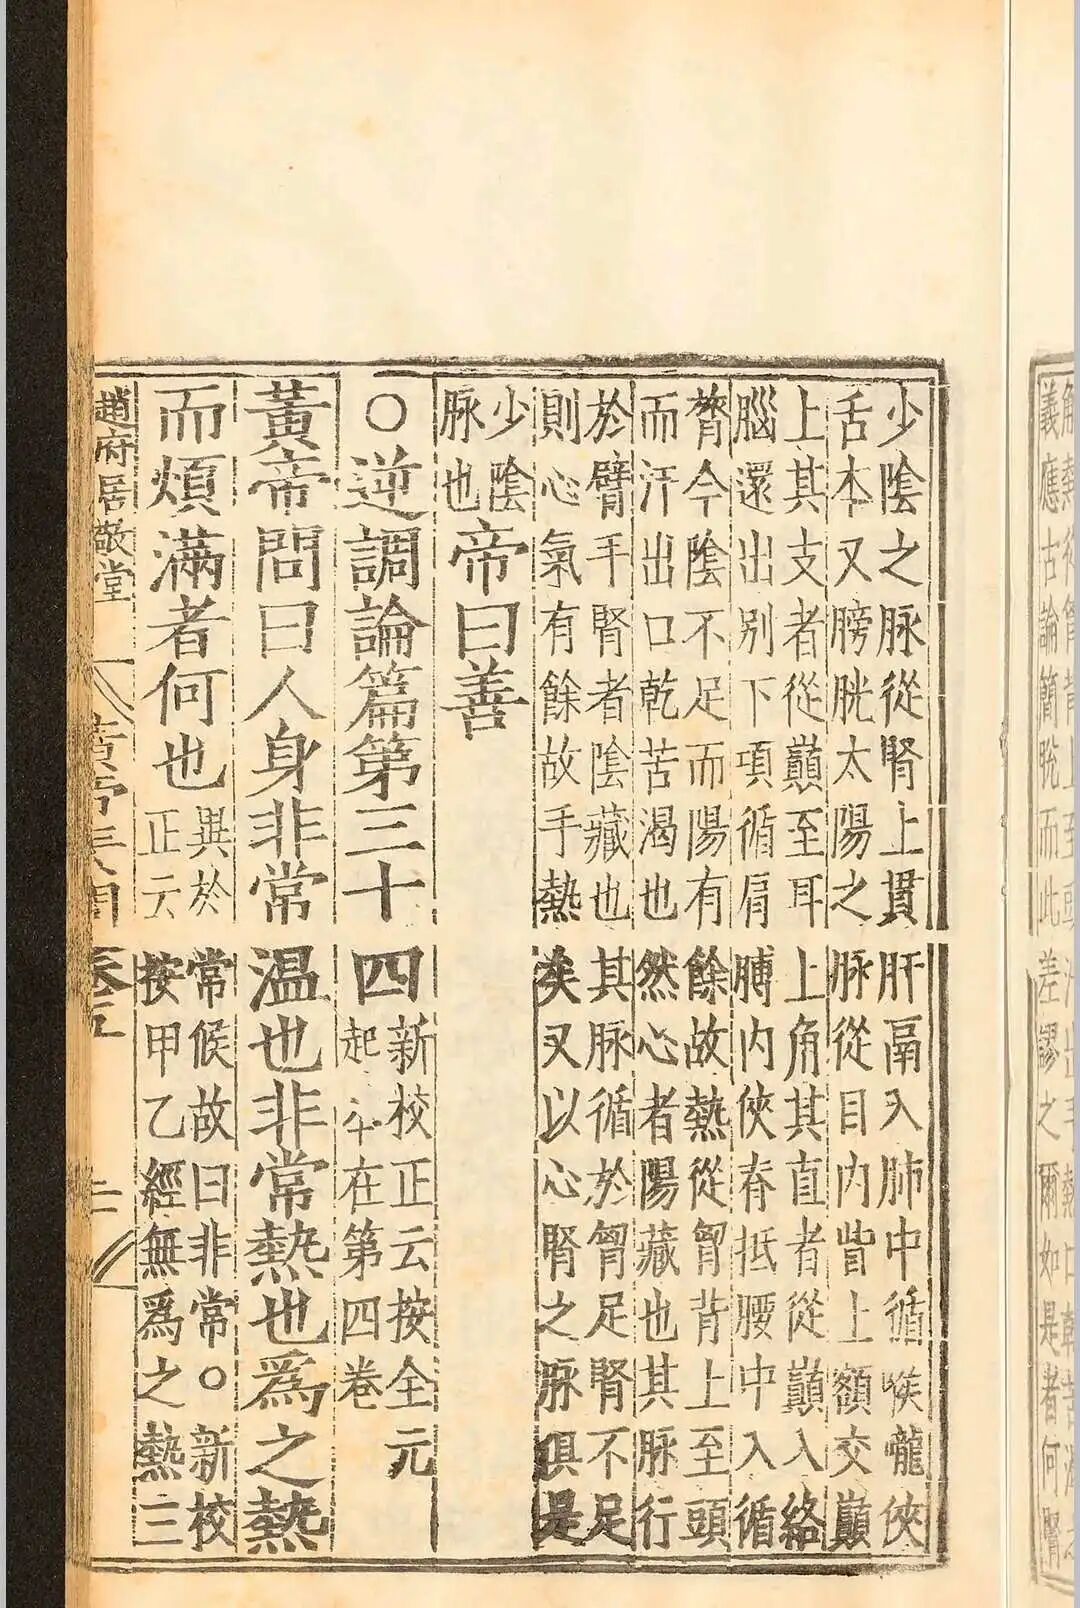 少陰之脉從腎上貫肝鬲入肺中循喉嚨俠
舌本又膀胱太陽之脉從目内眥上額交巔
上其支者從巔至耳上角其直者從巔入絡
腦還出别下項循肩髆内俠脊抵腰中入循
膂今陰不足而陽有餘故熱從胷背上至頭
而汗出口乾苦渴也然心者陽藏也其脉行
於臂手腎者陰藏也其脉循於胷足腎不足
則心氣有餘故手熱矣又以心腎之脉俱是
少陰
脉也
帝曰善
○逆調論篇第三十四
新校正云按全元
起本在第四卷
黃帝問曰人身非常温也非常熱也爲之熱
而煩滿者何也
異於常候故曰非常○新校
正云按甲乙經無爲之熱三
趙府居敬堂
黃帝素問
卷五
二
義應古論簡脱而此差謬之爾如是者何腎